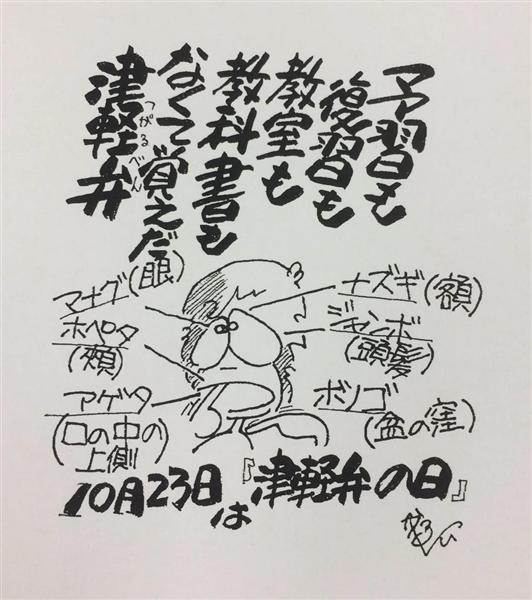 予習も
復習も
教室も
教科書も
なくて覚えだ
津軽弁
つがるべん
マナグ(眼)
ホペタ
(頬)
アゲタ
(口の中の
上側)
ナズギ(額)
ジャンボ
(頭髪)
ボノゴ
(盆の窪)
10月23日は『津軽弁の日』